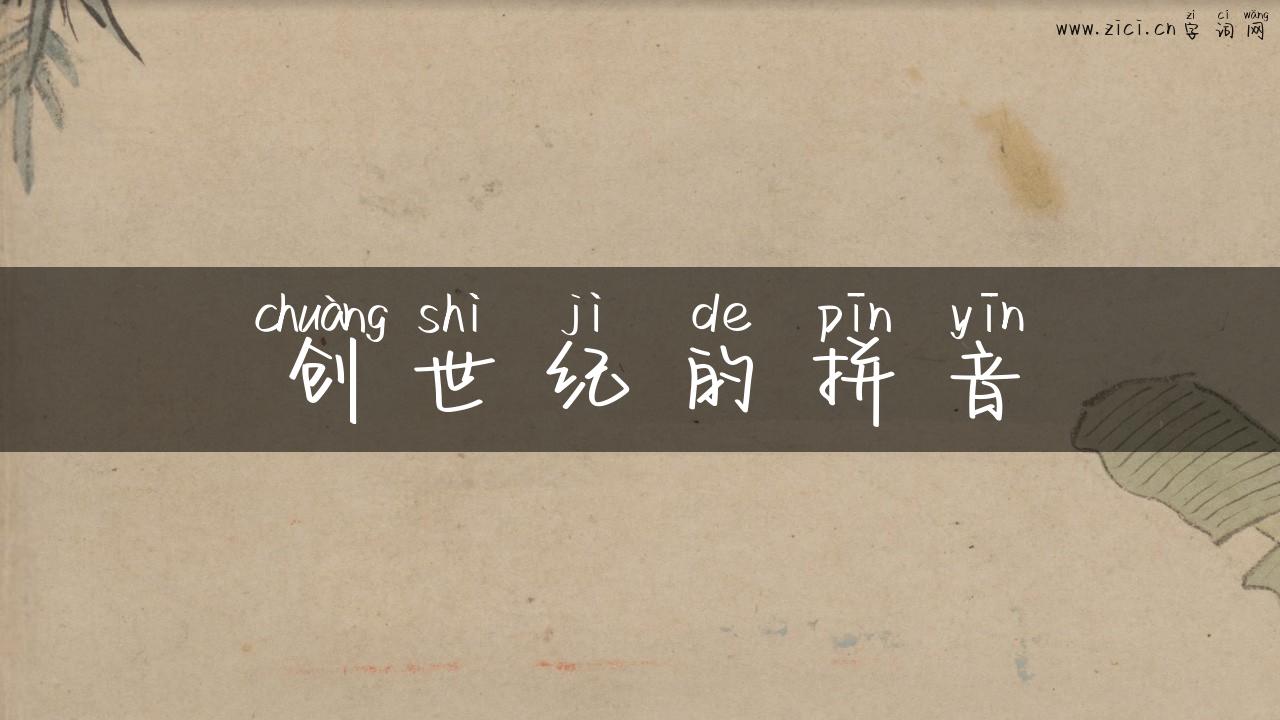 zì cí wǎng
www.zici.cn 字 词 网
chuàng shì jì de pīn yīn
创 世 纪 的 拼 音